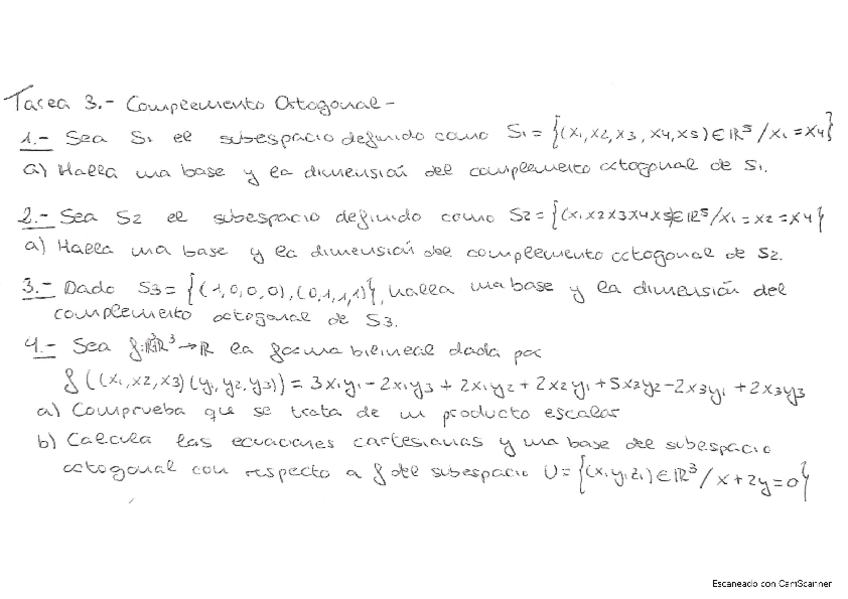 Tarea 3.- Complemento Ortogonal -
1.- Sea S1 el subespacio definido como S1 = {(x1, x2, x3, x4, x5) ∈ ℝ⁵ / x1 = x4}
a) Halla una base y la dimensión del complemento octogonal de S1.
2.- Sea S2 el subespacio definido como S2 = {(x1 x2 x3 x4 x5) ∈ ℝ⁵ / x1 = x2 = x4}
a) Halla una base y la dimensión del complemento octogonal de S2.
3.- Dado S3 = {(1,0,0,0), (0,1,1,1)}, halla una base y la dimensión del
complemento octogonal de S3.
4.- Sea f: ℝ³ → ℝ la forma bilineal dada por
f ((x1, x2, x3) (y1, y2, y3)) = 3x1y1 - 2x1y3 + 2x1y2 + 2x2y1 + 5x2y2 - 2x3y1 + 2x3y3
a) Comprueba que se trata de un producto escalar
b) Calcula las ecuaciones cartesianas y una base del subespacio
octogonal con respecto a f del subespacio U = {(x, y, z) ∈ ℝ³ / x + 2y = 0}
Escaneado con CamScanner